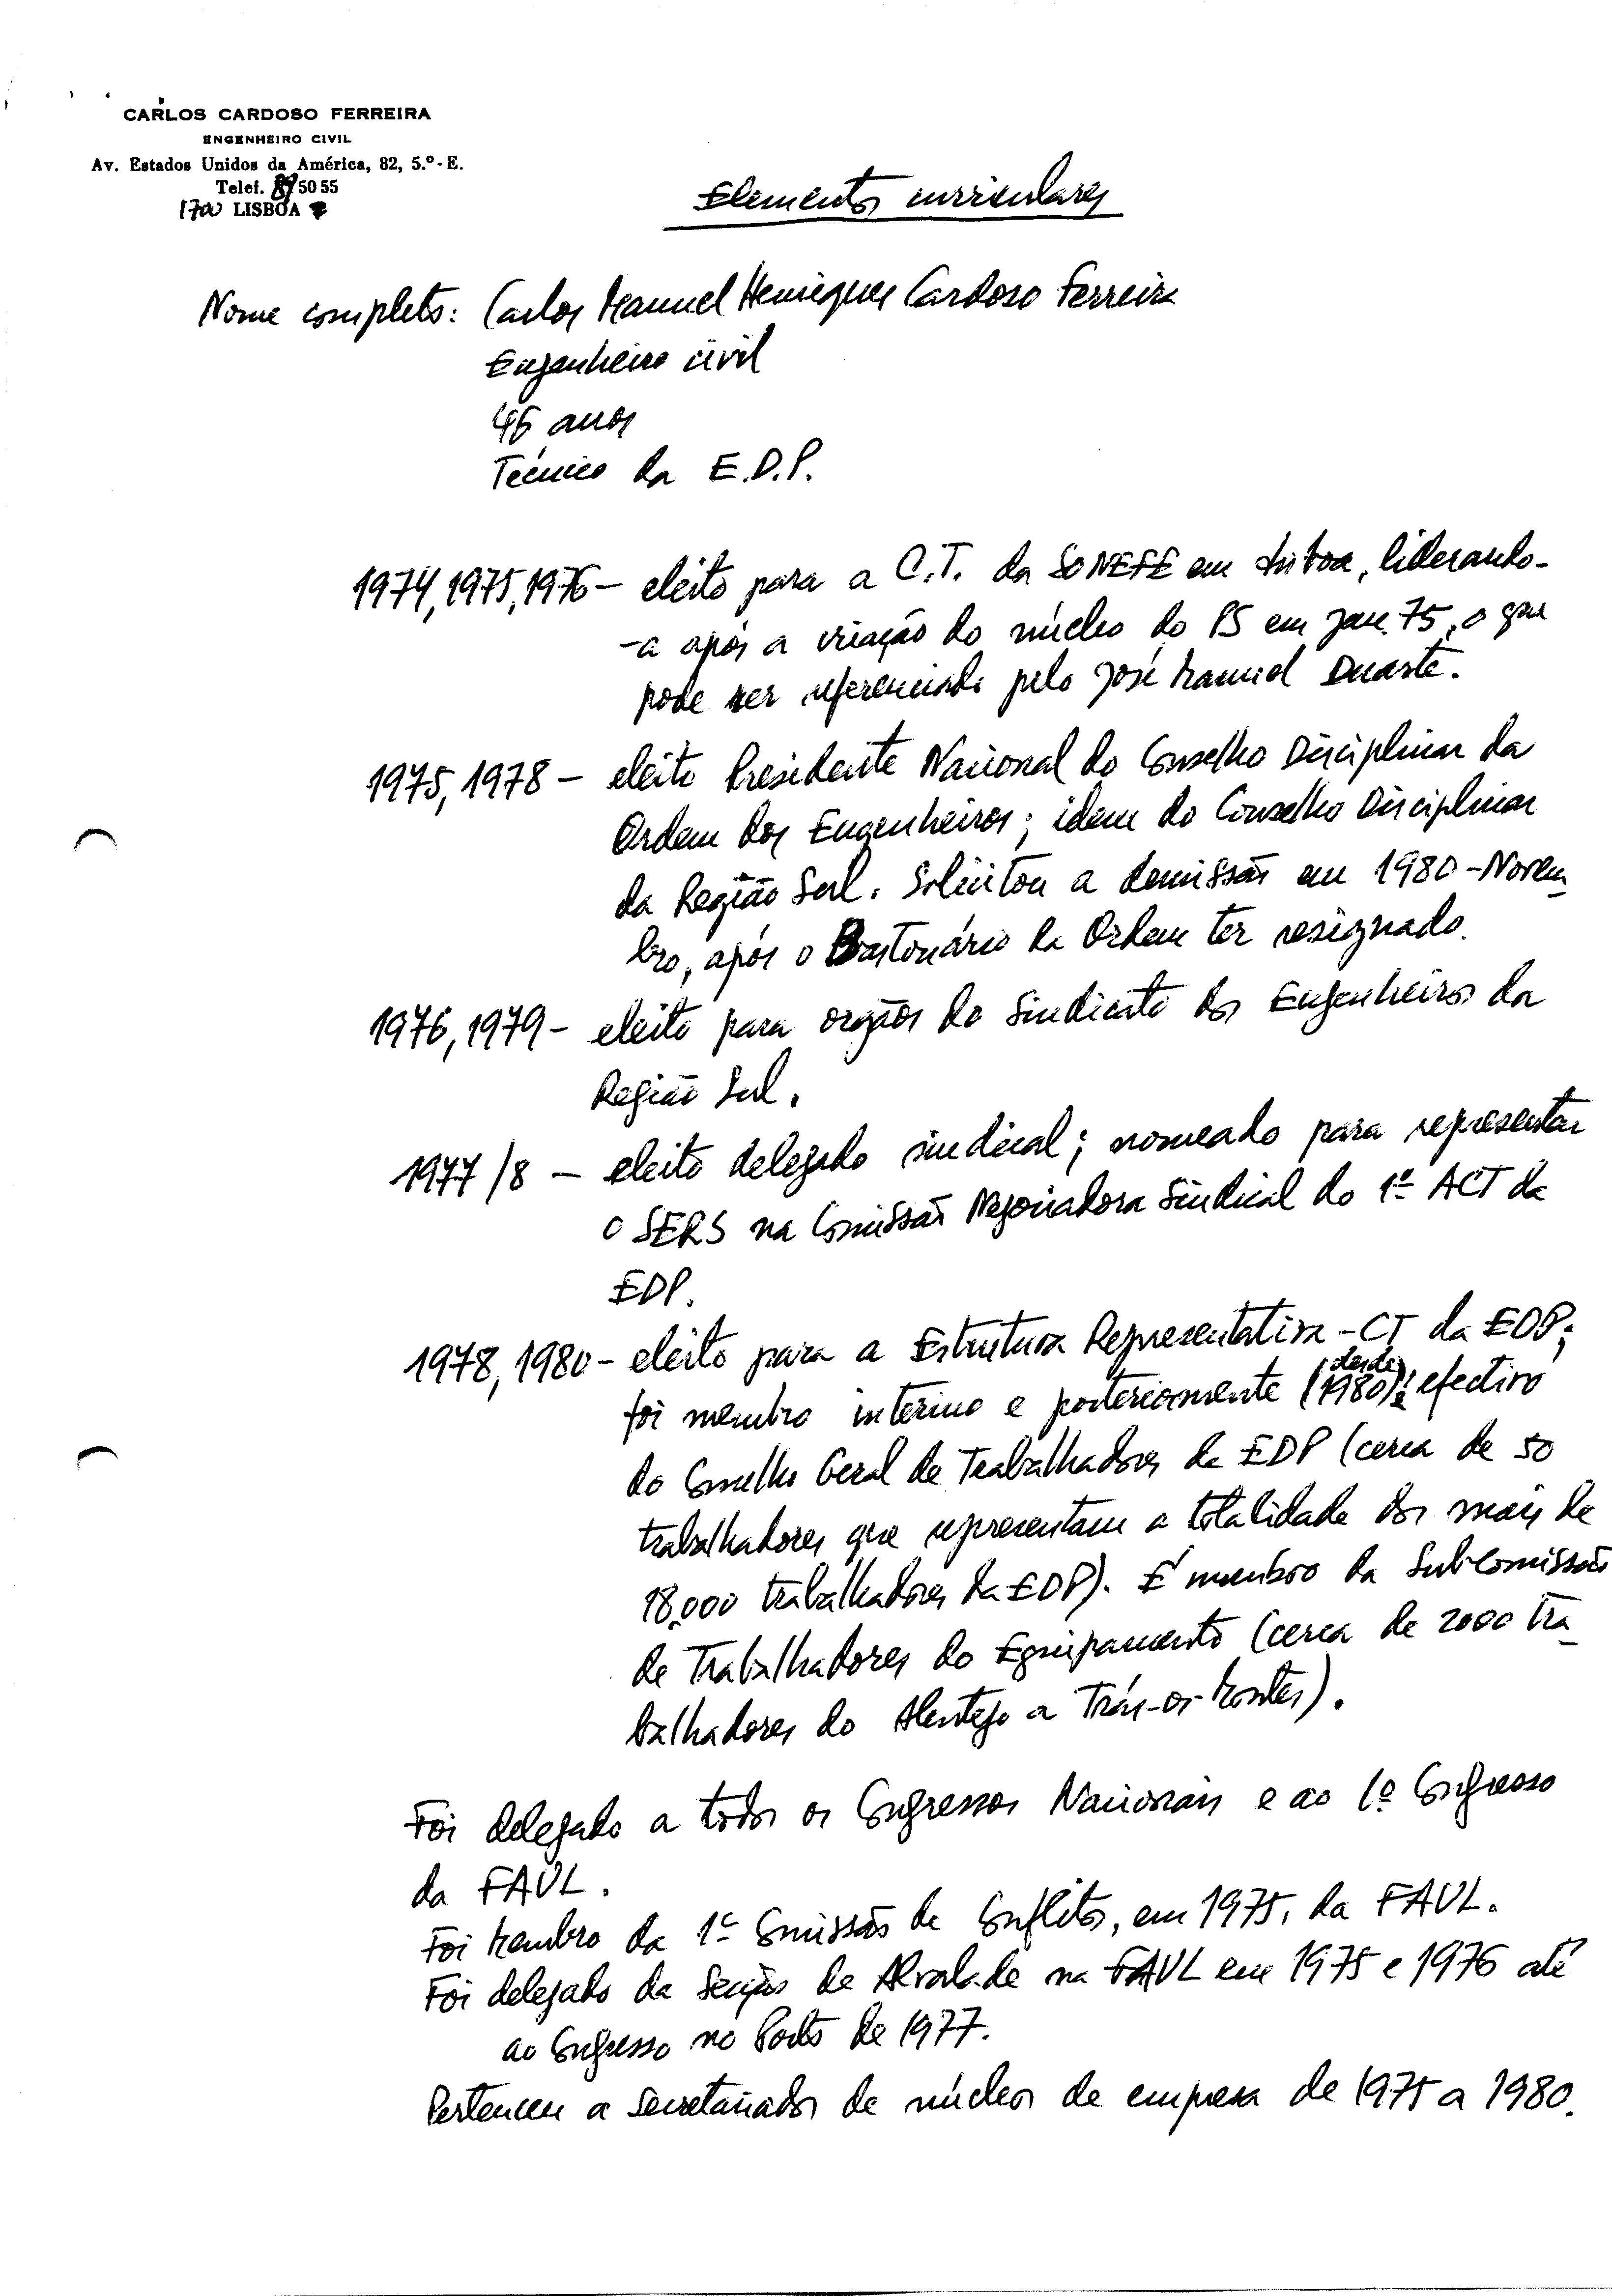 CARLOS CARDOSO FERREIRA
ENGENHEIRO CIVIL
Av. Estados Unidos da América, 82, 5.º-E.
Telef. 89 50 55
1700 LISBOA
Elementos curriculares
Nome completo: Carlos Manuel Henriques Cardoso Ferreira
Engenheiro civil
46 anos
Técnico da E.D.P.
1974, 1975, 1976 - eleito para a C.T. da SONEFE em Lisboa, liderando-
-a após a criação do núcleo do PS em Jan. 75, o que
pode ser referenciado pelo José Manuel Duarte.
1975, 1978 - eleito Presidente Nacional do Conselho Disciplinar da
Ordem dos Engenheiros; idem do Conselho Disciplinar
da Região Sul. Solicitou a demissão em 1980 - Novem
bro, após o Bastonário da Ordem ter resignado.
1976, 1979 - eleito para orgãos do Sindicato dos Engenheiros da
Região Sul.
1977/8 - eleito delegado sindical; nomeado para representar
o SERS na Comissão Negociadora Sindical do 1º ACT da
EDP.
1978, 1980 - eleito para a Estrutura Representativa - CT da EDP;
foi membro interino e posteriormente (desde 1980) é efectivo
do Conselho Geral de Trabalhadores da EDP (cerca de 50
trabalhadores que representam a totalidade dos mais de
18.000 trabalhadores da EDP). É membro da Sub-Comissão
de Trabalhadores do Equipamento (cerca de 2000 tra
balhadores do Alentejo a Trás-os-Montes).
Foi delegado a todos os Congressos Nacionais e ao 1º Congresso
da FAUL.
Foi Membro da 1ª Comissão de Conflitos, em 1975, da FAUL.
Foi delegado da Secção de Alvalade na FAUL em 1975 e 1976 até
ao Congresso no Porto de 1977.
Pertenceu a Secretariados de núcleos de empresa de 1975 a 1980.